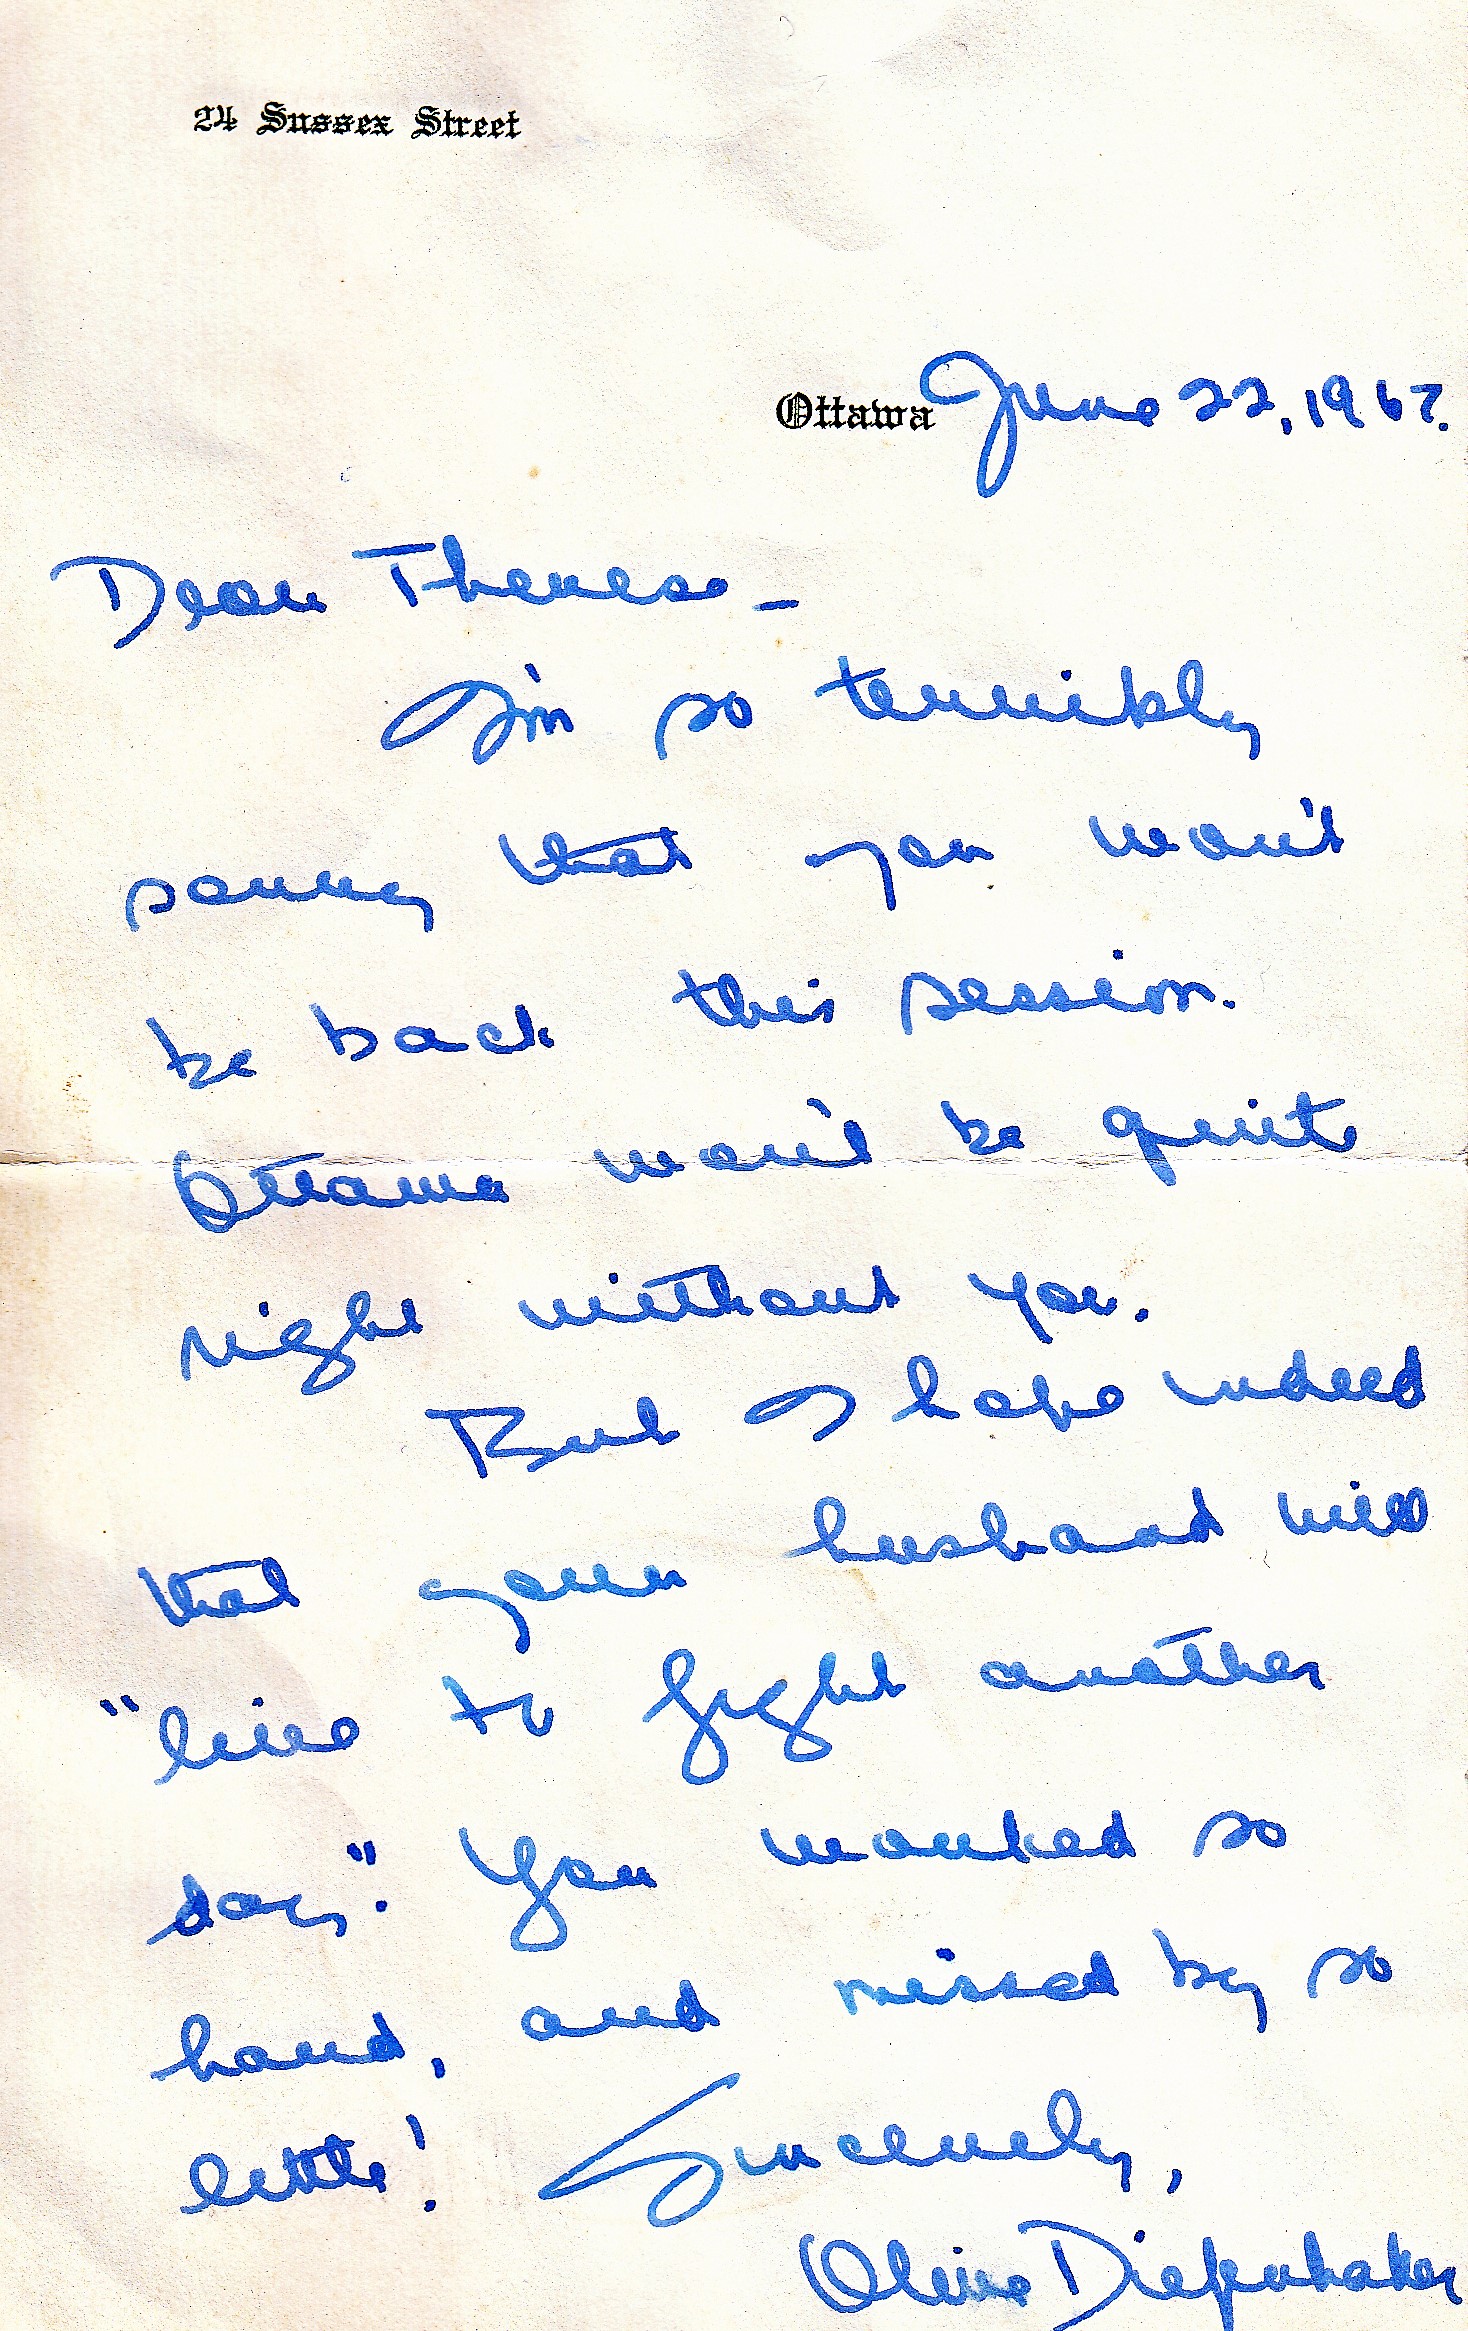 24 Sussex Street
Ottawa June 22, 1962.
Dear Therese –
I'm so terribly
sorry that you won't
be back this session.
Ottawa won't be quite
right without you.
But I hope indeed
that your husband will
"live to fight another
day". You worked so
hard, and missed by so
little! Sincerely,
Olive Diefenbaker